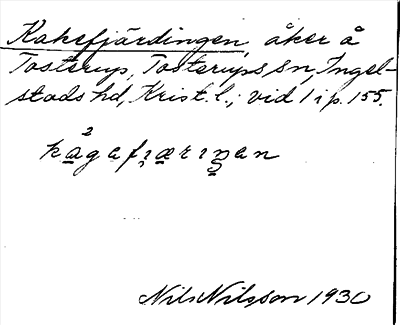 Kakefjärdingen, åker å
Tosterup, Tosterups sn, Ingel-
stads hd, Krist. l.; vid 1 i p. 155.
2
kagafıærıŋan
Nils Nilsson 1930